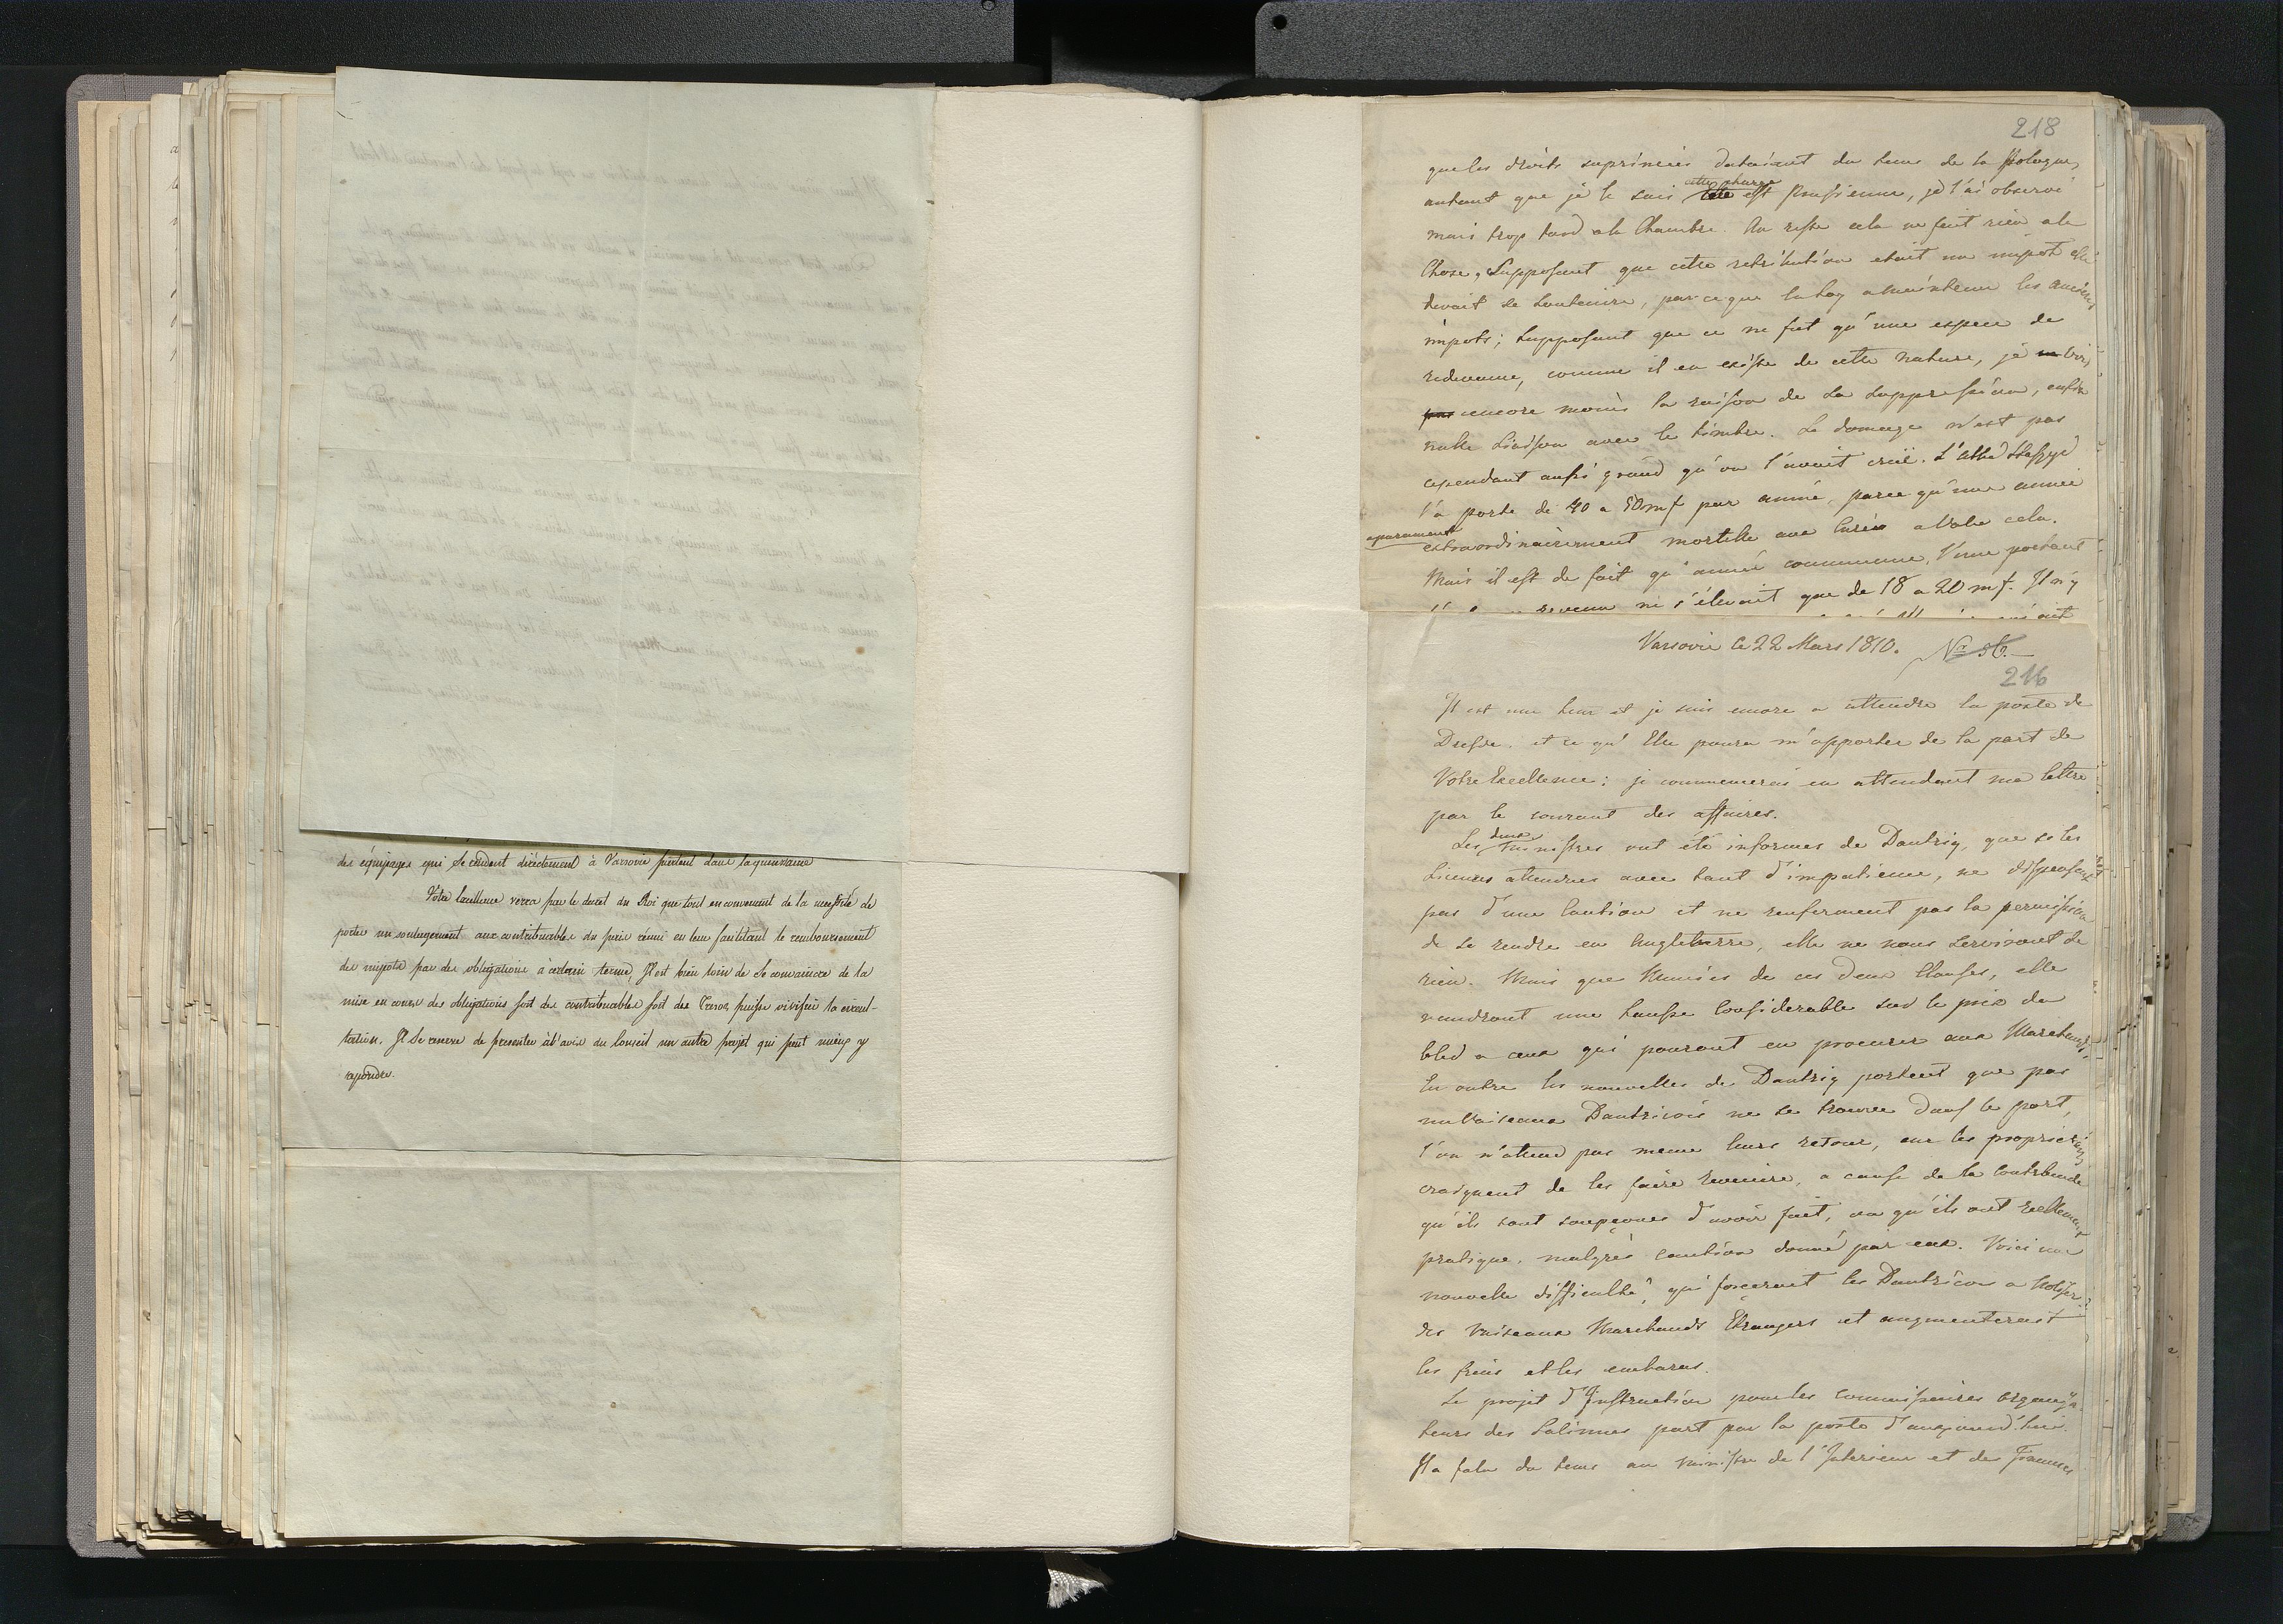 des équipages qui se rendent directement à Varsovie partent dans la quinzaine
Votre Excellence verra par le decret du Roi que tout en convenant de la necessité de
porter un soulagement aux contribuables du païs réuni en leur facilitant le remboursement
des impots par des obligations à certain terme, Il est bien loin de se convaincre de la
mise en cours des obligations soit des contribuables soit des Tresor puisse vivifier la circul-
tation. Il se reserve de presenter à l'avis du Conseil un autre projet qui peut mieux y
repondre.
218
que les droits suprimeés datoient du tems de la Pologne,
autant que je le sais cette charge est Prussienne, je l'ai observé
mais trop tard a la Chambre. Au reste cela ne fait rien a la
Chose, Supposant que cette retribution etait un impot elle
devait se soutenire, parceque la loy a maintenu les anciens
impots; supposant que ce ne fut qu'une espece de
redevance, comme il en existe de cette nature, je vois
encore moins la raison de sa suppression, enfin
nulle liaison avec le timbre. Le domage n'est pas
cependant aussi grand qu'on l'avait crüe. L'Abbé
l'a porté de 40 a 50 mf par année, parce qu'une année
aparament
extraordinairement mortelle aux Curés a valu cela.
Mais il est de fait qu'année commune, l'une portant
revenu ne s'elevait que de 18 a 20 mf. Il n'y
Varsovie le 22 Mars 1810. Nr. 56.
216
Il est une heur et je suis encore a attendre la poste de
Dresde, et ce qu'Elle poura m'apporter de la part de
Votre Excellence: je commencerai en attendant ma lettre
par le courant des affaires.
Les deux Ministres ont été informes de Dantzig, que si les
Licences attendues avec tant d'impatience, ne dispensent
pas d'une Caution et ne renferment pas la permission
de se rendre en Angleterre, elle ne nous serviront de
rien. Mais que Munies de ces deux Clauses, elle
vaudront une hausse considerable sur le prix du
bled a ceux qui pouront en procurer aux Marchands.
En outre les nouvelles de Dantzig portent que pas
un Vaiseaux Dantzicois ne se trouve dans le port,
l'on n'attend pas meme leurs retour, car les proprietaires
craignent de les faire revenire, a cause de la Contrebande
qu'ils sont soupçonnes d'avoir fait, ou qu'ils ont reellement
pratique, malgrés caution donné par eux. Voici une
nouvelle difficulté, qui forcerait les Dantzicois a noliser
des Vaiseaux Marchands Etrangers et augmenterait
les frais et les embaras.
Le projet d'Instruction pour les commissaires organisa-
teurs des Salinnes part par la poste d'aujourd'hui.
Il a falu du tems au Ministre de l'Interieur et des Finances